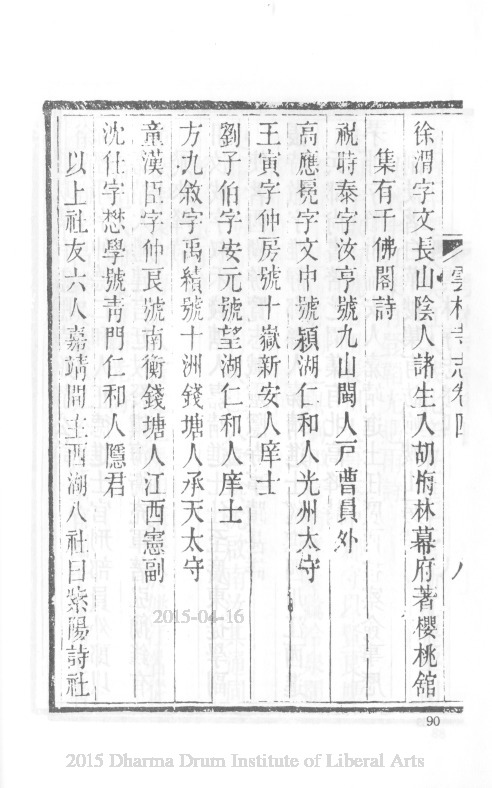 雲林寺志卷四
八
徐渭字文長山陰人諸生入胡梅林幕府著櫻桃舘
集有千佛閣詩
祝時泰字汝亨號九山閩人戸曹員外
高應冕字文中號潁湖仁和人光州太守
王寅字仲房號十嶽新安人庠士
劉子伯字安元號望湖仁和人庠士
方九敘字禹績號十洲錢塘人承天太守
童漢臣字仲良號南衡錢塘人江西憲副
沈仕字懋學號靑門仁和人隱君
以上社友六人嘉靖間主西湖八社曰紫陽詩社
2015-04-16
90
2015 Dharma Drum Institute of Liberal Arts